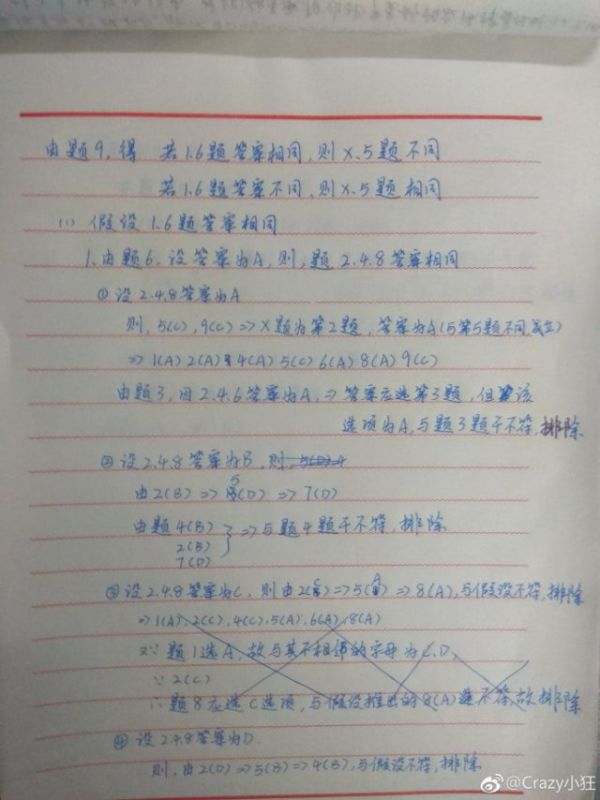 由题9,得 若1.6题答案相同,则X.5题不同
若1.6题答案不同,则X.5题相同
(1) 假设1.6题答案相同
1.由题6,设答案为A,则,题2.4.8答案相同
① 设2.4.8答案为A
则,5(C),9(C)=>X题为第2题,答案为A(与第5题不同,成立)
=>1(A)2(A)4(A)5(C)6(A)8(A)9(C)
由题3,因2.4.6答案为A,=>答案应选第3题,但该
选项为A,与题3题干不符,排除
② 设2.4.8答案为B,则
由2(B)=>5(D)=>7(D)
由题4(B)
2(B)
7(D) }=>与题4题干不符,排除
③ 设2.4.8答案为C,则由2(C)=>5(A)=>8(A),与假设不符,排除
=>1(A).2(C).4(C).5(A).6(A).8(A)
又∵题1选A,故与其不相邻的字母为C.D,
∵2(C)
∴题8应选C选项,与假设推出的8(A)不符,故排除
④ 设2.4.8答案为D.
则,由2(D)=>5(B)=>4(B),与假设不符,排除
@Crazy小狂